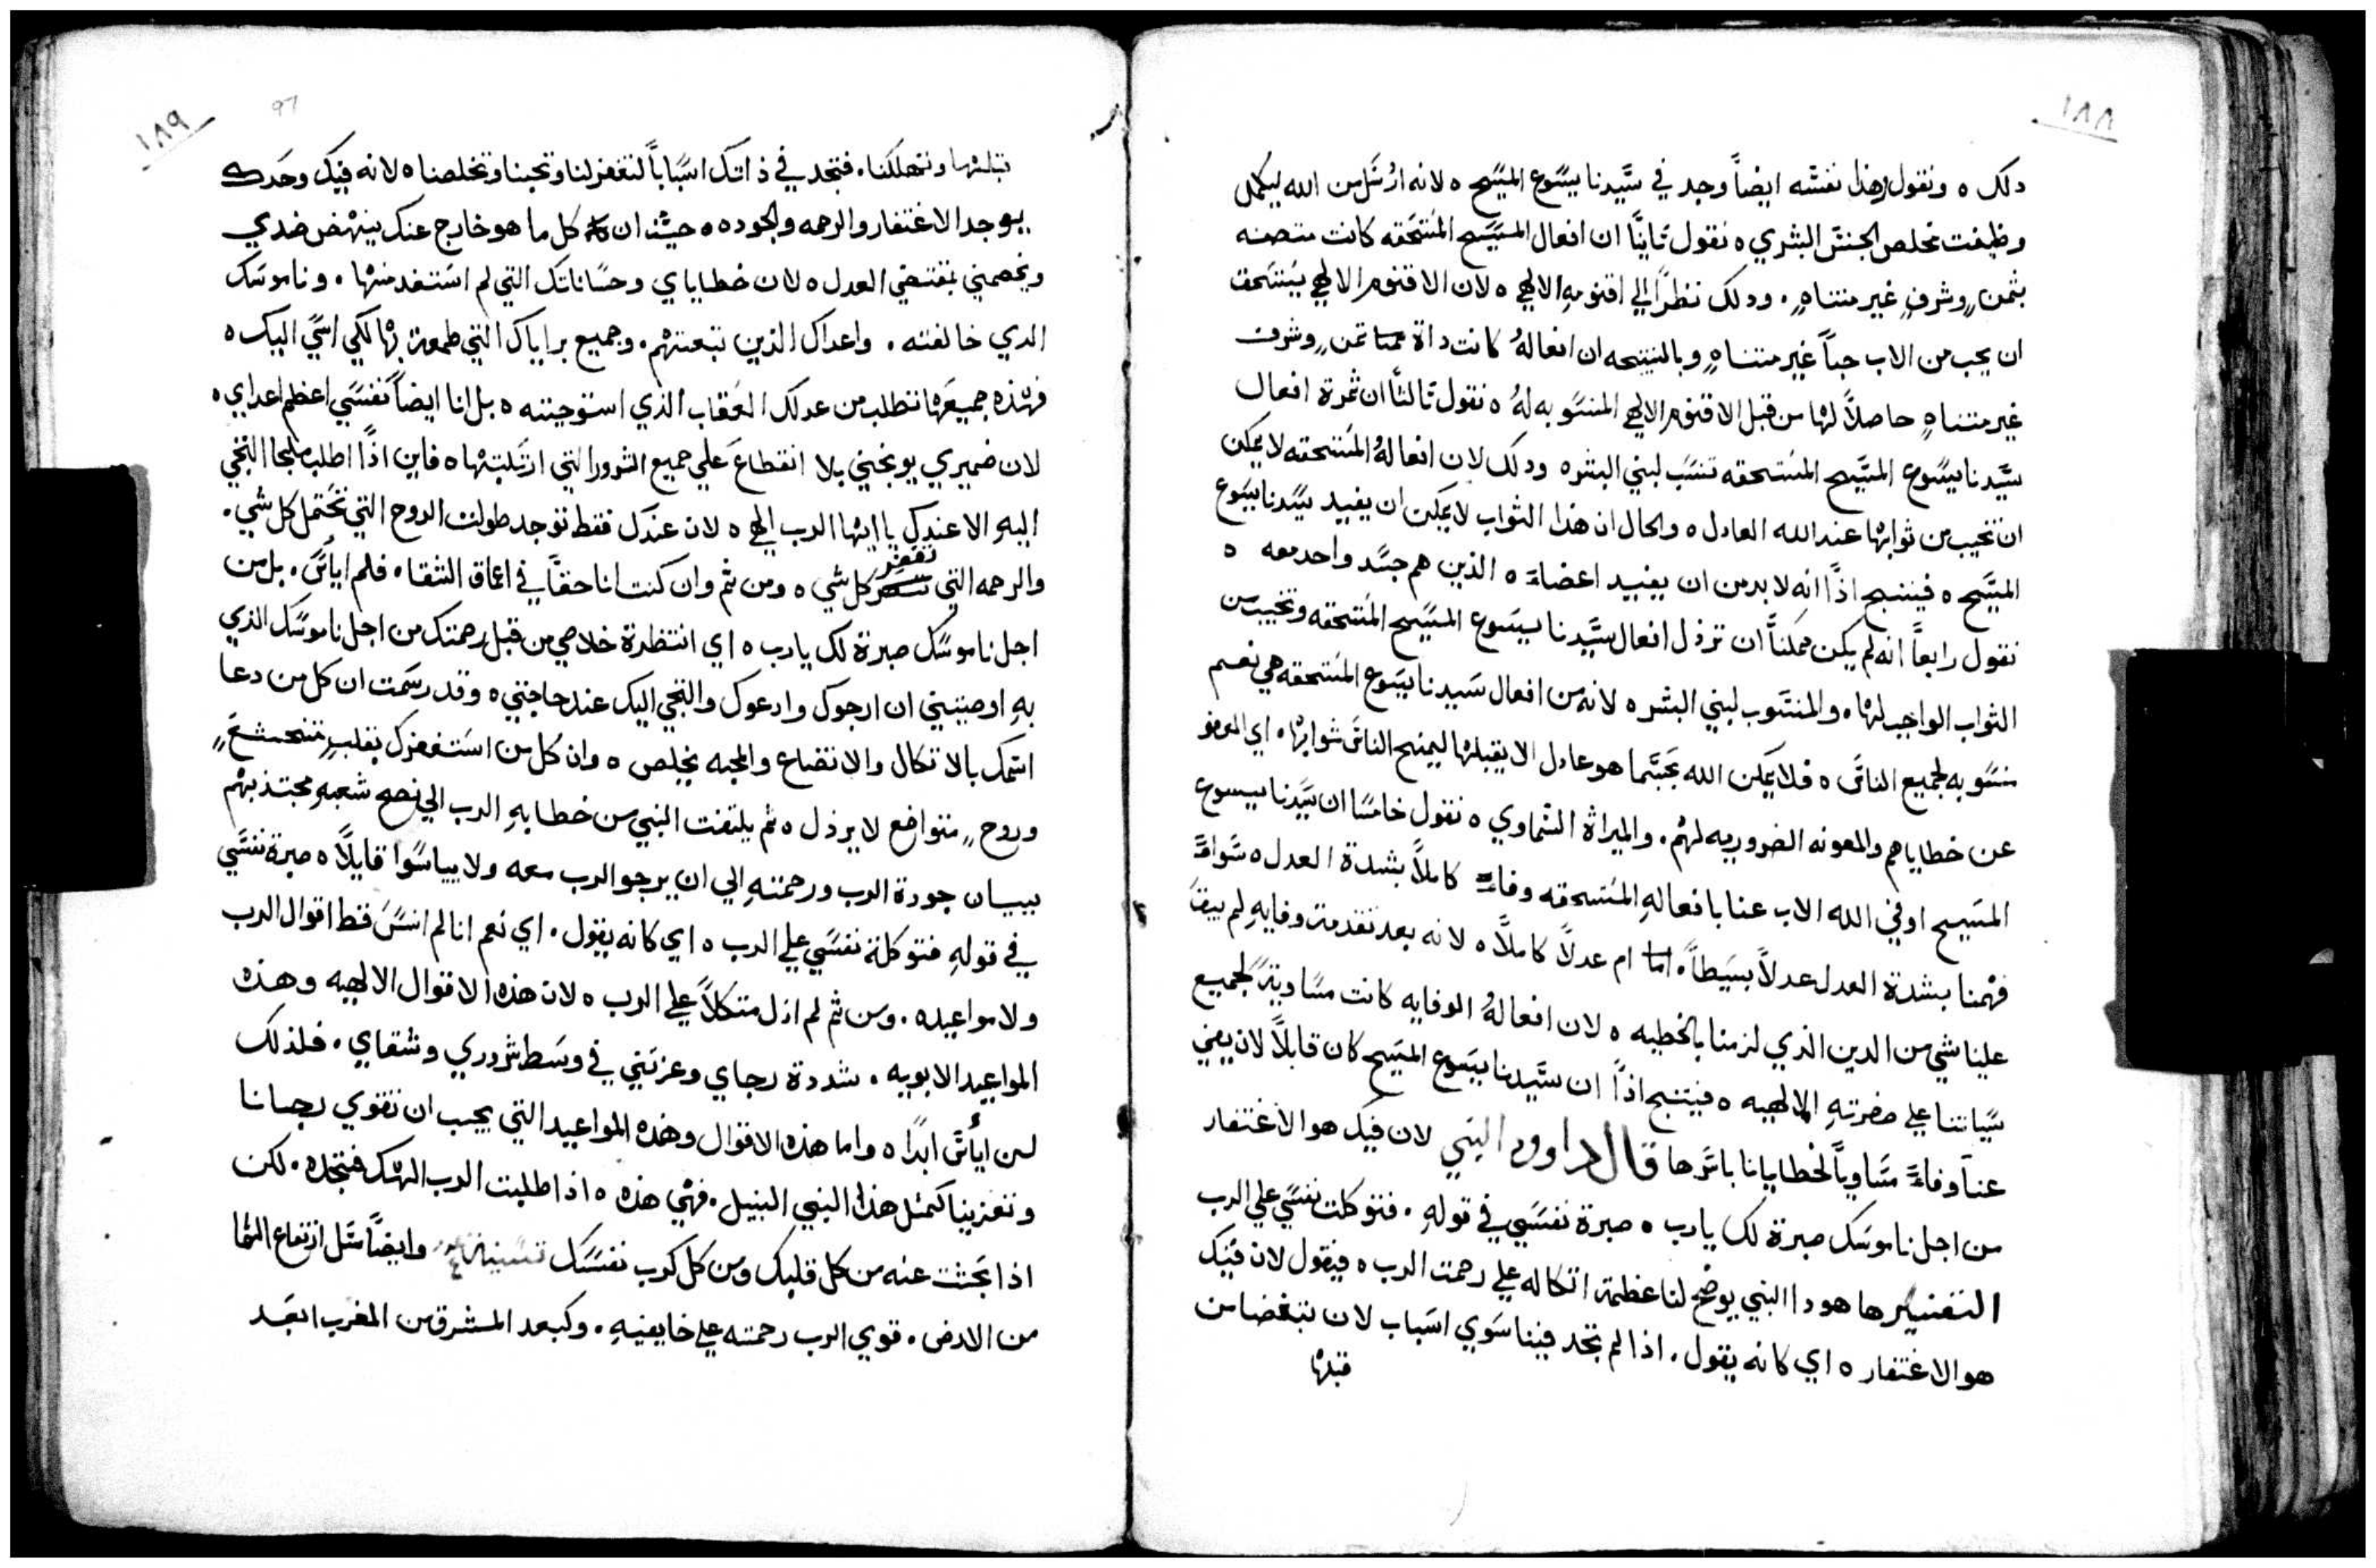 ١٨٨
دلك ٥ ونقول وهذا نفسه ايضاً وجد في سيدنا يسوع المسيح ٥ لانه ارسل من الله ليكمل
وظيفت مخلص الجنس البشري ٥ نقول ثانيًا ان افعال المسيح المستحقه كانت متصفه
بثمنٍ وشرفٍ غير متناهٍ . ودلك نظرًا الي اقنومهِ الالهي ٥ لان الاقنوم الالهي يستحق
ان يحب من الاب حباً غير متناهٍ وبالنتيجه ان افعالهُ كانت داة ثمنٍ وشرف
غير متناهٍ حاصلاً لها من قبل الاقنوم الالهي المنسوبه لهُ ٥ نقول ثالثًا ان ثمرة افعال
سيدنا يسوع المسيح المستحقه تنسب لبني البشر ٥ ودلك لان افعالهُ المستحقه لا يمكن
ان تخيب من ثوابها عند الله العادل ٥ والحال ان هذا الثواب لا يمكن ان يفيد سيدنا يسوع
المسيح ٥ فينتج اذًا انه لا بد من ان يفيد اعضاءَه الذين هم جسد واحد معه ٥
نقول رابعاً انه لم يكن ممكنًا ان ترذل افعال سيدنا يسوع المسيح المستحقه وتخيب من
الثواب الواجب لها . والمنسوب لبني البشر ٥ لانه من افعال سيدنا يسوع المستحقه هي نعم
منسوبه لجميع الناس ٥ فلا يمكن الله بحسبما هو عادل الا يقبلها ليمنح الناس ثوابها . اي العفو
عن خطاياهم والمعونه الضروريه لهم . والميراة السماوي ٥ نقول خامسًا ان سيدنا يسوع
المسيح اوفي الله الاب عنا بافعالهِ المستحقه وفاءً كاملاً بشدة العدل ٥ سواءً
فهمنا بشدة العدل عدلاً بسيطاً . ام عدلاً كاملاً ٥ لانه بعد تقدمة وفايهِ لم يبقَ
علينا شي من الدين الذي لزمنا بالخطيه ٥ لان افعالهُ الوفايه كانت مساويةً لجميع
سياتنا علي حضرتهِ الالهيه ٥ فينتج اذًا ان سيدنا يسوع المسيح كان قابلاً لان يفي
عنا وفاءً مساوياً لخطايانا باسرها قال داوود النبي لان فيك هو الاغتفار
من اجل ناموسك صبرة لك يارب ٥ صبرة نفسي في قولهِ . فتوكلت نفسي علي الرب
التفسير ها هودا النبي يوضح لنا عظمة اتكاله علي رحمت الرب ٥ فيقول لان فيك
هو الاغتفار ٥ اي كانه يقول . اذا لم تجد فينا سوي اسباب لان تبغضنا من
قبلها
١٨٩
97
قبلها وتهلكنا . فتجد في ذاتك اسباباً لتغفر لنا وتحبنا وتخلصنا ٥ لانه فيك وحدك
يوجد الاغتفار والرحمه والجوده ٥ حيث ان كل ما هو خارج عنك ينهض ضدي
ويخصمني بمقتضي العدل ٥ لان خطاياي وحساناتك التي لم استفد منها . وناموسك
الدي خالفته . واعداك الذين تبعتهم . وجميع براياك التي طمعة بها لكي اسي اليك ٥
فهذه جميعها تطلب من عدلك العقاب الذي استوجبته ٥ بل انا ايضاً نفسي اعظم اعداي ٥
لان ضميري يوبخني بلا انقطاع علي جميع الشرور التي ارتكبتها ٥ فاين اذًا اطلب ملجا التجي
اليهِ الا عندك يا ايها الرب الهي ٥ لان عندك فقط توجد طولت الروح التي تحتمل كل شي .
والرحمه التي تغفر كل شي ٥ ومن ثم وان كنت انا حقًا في اعماق الشقاء . فلم ايأس . بل من
اجل ناموسك صبرة لك يارب ٥ اي انتظرة خلاصي من قبل رحمتك من اجل ناموسك الذي
بهِ اوصيتني ان ارجوك وادعوك والتجي اليك عند حاجتي ٥ وقد رسمت ان كل من دعا
اسمك بالاتكال والاتضاع والمحبه يخلص ٥ وان كل من استغفرك بقلبٍ متخشعٍ
وروحٍ متواضع لا يرذل ٥ ثم يلتفت النبي من خطابهِ الرب الي نصح شعبهِ مجتذبهم
ببيان جودة الرب ورحمتهِ الي ان يرجو الرب معه ولا يياسوا قايلاً ٥ صبرة نفسي
في قولهِ فتوكلة نفسي علي الرب ٥ اي كانه يقول . اي نعم انا لم انس قط اقوال الرب
ولا مواعيده . ومن ثم لم ازل متكلاً علي الرب ٥ لان هذه الاقوال الالهيه وهذه
المواعيد الابويه . شددة رجاي وعزتني في وسط شروري وشقاي . فلذلك
لن ايأس ابدًا ٥ واما هذه الاقوال وهذه المواعيد التي يجب ان تقوي رجانا
وتعزينا كمثل هذا النبي النبيل . فهي هذه ٥ اذا طلبت الرب الهك فتجده . لكن
اذا بحثت عنه من كل قلبك ومن كل كرب نفسك وايضاً مثل ارتفاع السما
من الارض . قوي الرب رحمته علي خايفيهِ . وكبعد المشرق من المغرب ابعد